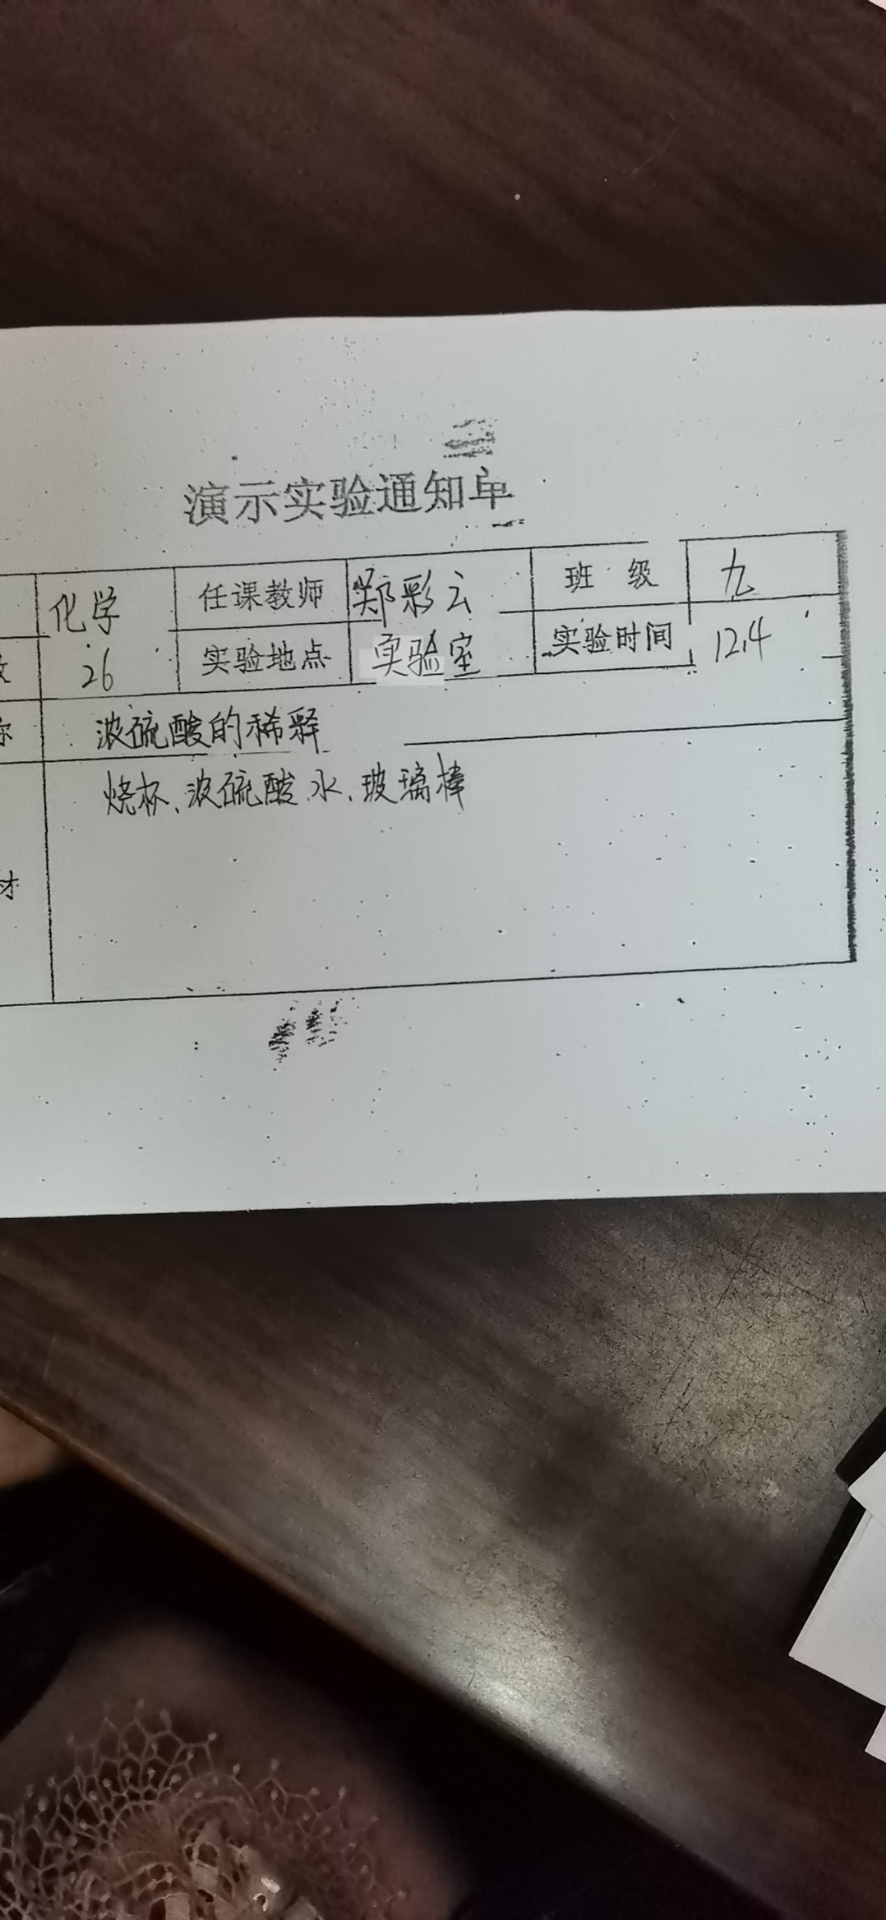 演示实验通知单
化学 任课教师 郑彩云 班 级 九
26 实验地点 实验室 实验时间 12.4
称 浓硫酸的稀释
烧杯、浓硫酸、水、玻璃棒
材